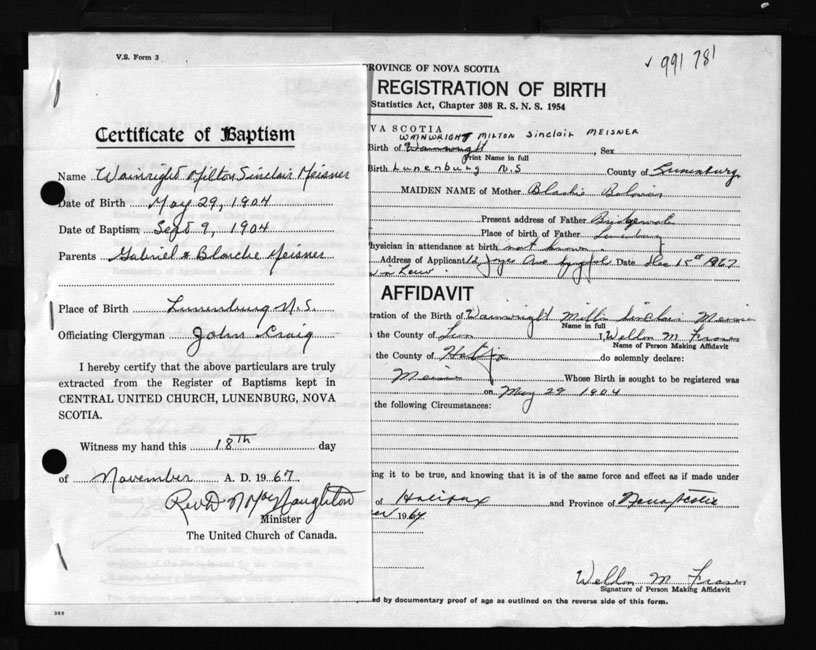 V.S. Form 3
Certificate of Baptism
Name Wainright Milton Sinclair Meisner
Date of Birth May 29, 1904
Date of Baptism Sept 9, 1904
Parents Gabriel & Blanche Meisner
Place of Birth Lunenburg N.S.
Officiating Clergyman John Craig
I hereby certify that the above particulars are truly
extracted from the Register of Baptisms kept in
CENTRAL UNITED CHURCH, LUNENBURG, NOVA
SCOTIA.
Witness my hand this 18th day
of November A. D. 1967.
Rev D MacNaughton
Minister
The United Church of Canada.
✓ 991781
PROVINCE OF NOVA SCOTIA
REGISTRATION OF BIRTH
Statistics Act, Chapter 308 R. S. N. S. 1954
VA SCOTIA
WAINWRIGHT MILTON Sinclair MEISNER
Birth of Wainwright, Sex
Print Name in full
Birth Lunenburg N.S County of Lunenburg
MAIDEN NAME of Mother
Present address of Father Bridgewater
Place of birth of Father Lunenburg
hysician in attendance at birth not known
Address of Applicant 12 Joyce Ave Date Dec 1st 1967
AFFIDAVIT
tration of the Birth of Wainwright Sinclair
Name in full
the County of Lun I, Weldon M
Name of Person Making Affidavit
the County of Halifax do solemnly declare:
Whose Birth is sought to be registered was
on May 29 1904
the following Circumstances:
ing it to be true, and knowing that it is of the same force and effect as if made under
of Halifax and Province of Nova Scotia
1967
Weldon M
Signature of Person Making Affidavit
by documentary proof of age as outlined on the reverse side of this form.